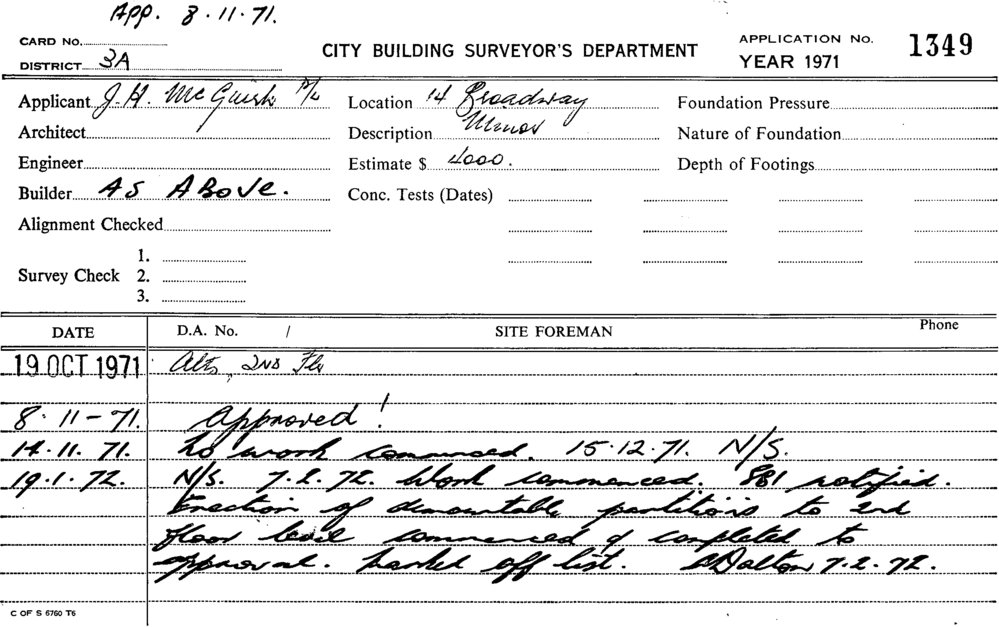 App. 8.11.71.
CARD No.
DISTRICT 3A
CITY BUILDING SURVEYOR'S DEPARTMENT
APPLICATION No. 1349
YEAR 1971
Applicant J. H. McGuirk P/L
Location 14 Broadway
Foundation Pressure
Architect
Description Minor
Nature of Foundation
Engineer
Estimate $ 4000.
Depth of Footings
Builder AS ABOVE.
Conc. Tests (Dates)
Alignment Checked
Survey Check 1.
2.
3.
DATE D.A. No. / SITE FOREMAN Phone
19 OCT 1971 Alts, 2ND Flr
8.11-71. Approved!
14.11.71. No work commenced. 15.12.71. N/S.
19.1.72. N/S. 7.2.72. Work commenced. notified.
Erection of demountable partitions to 2nd
floor level commenced & completed to
approval. Marked off list. Dalton 7.2.72.
C OF S 6760 T6